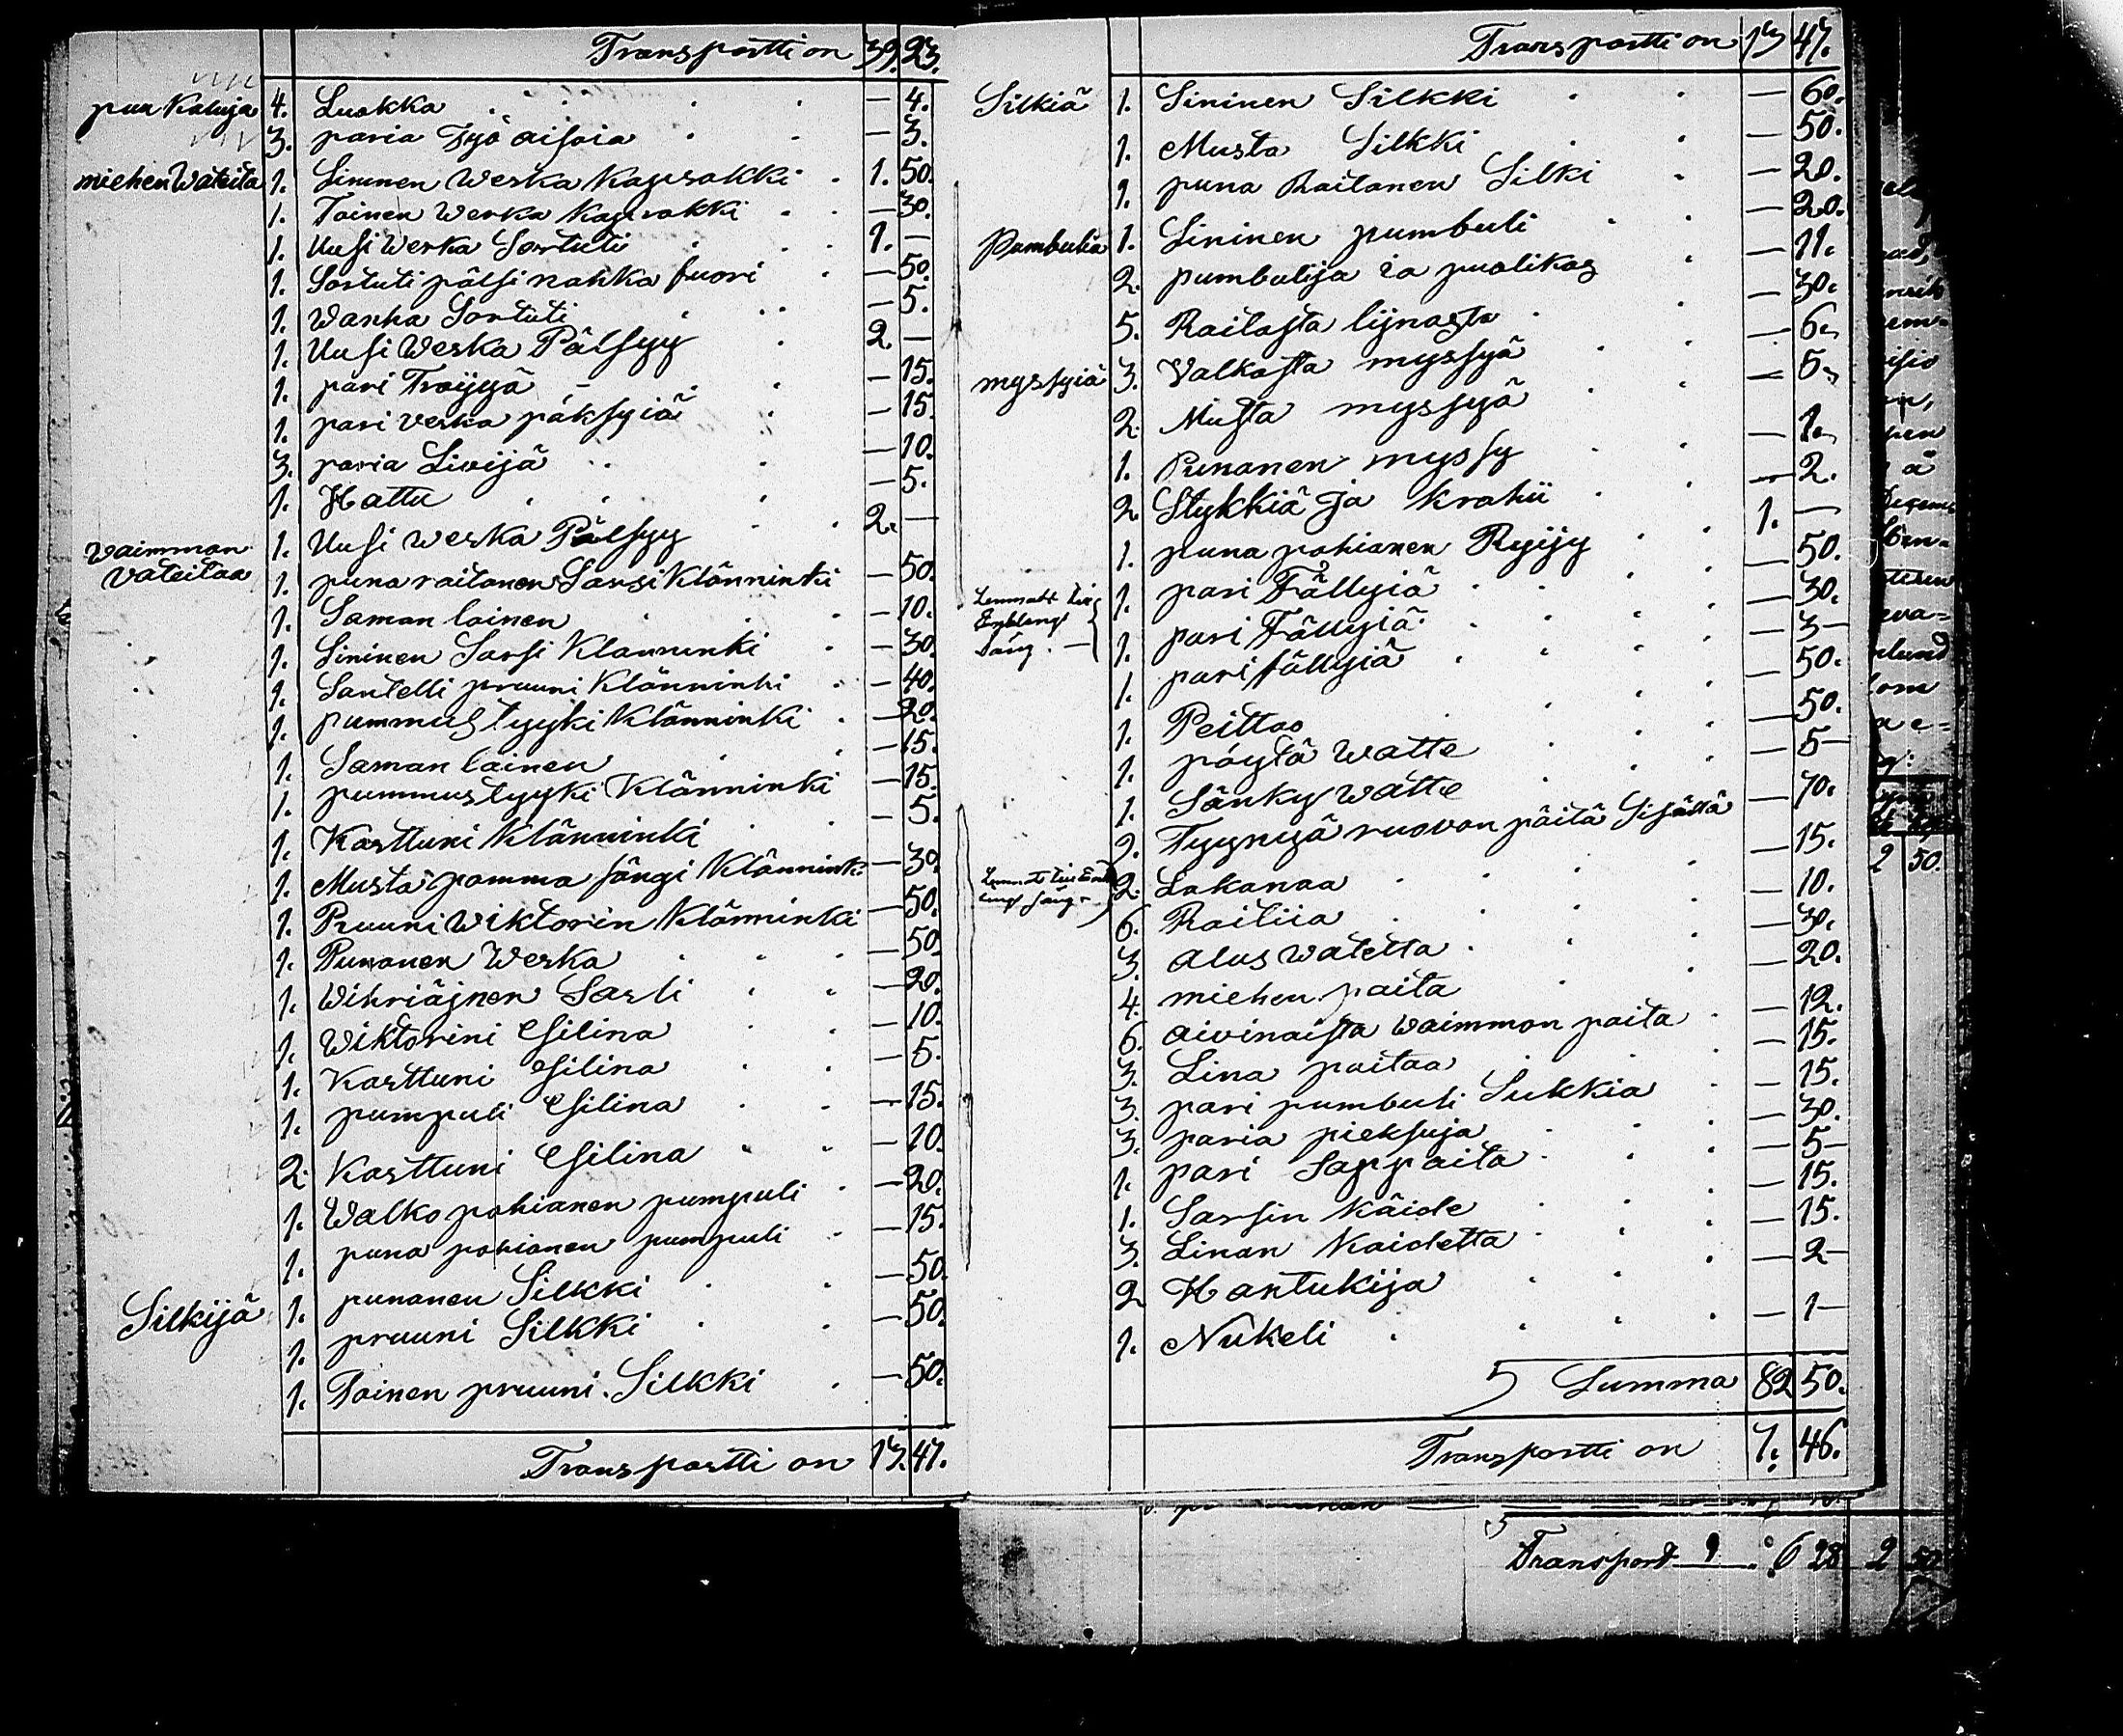 Transportti on 39. 23.
puu Kaluja 4. Luokka — 4.
3. paria Työ aisoia — 3.
miehen Wateita 1. Sininen Werka Kaprokki 1. 50.
1. Toinen Werka Kaprokki — 30.
1. Uusi Werka Sortuti 1. —
1. Sortuti pälsi nahka fuori — 50.
1. Wanha Sortuti — 5.
1. Uusi Werka Pälsyy 2. —
1. pari Tröijyä — 15.
1. pari verka päksyiä — 15.
3. paria Livijä — 10.
1. Hattu — 5.
Waimmon Vateitaa 1. Uusi Werka Pälsyy 2. —
1. puna raitanen Sarsi Klänninki — 50.
1. Saman lainen — 10.
1. Sininen Sarsi Klänninki — 30.
1. Santelli pruuni Klänninki — 40.
1. pummus tyyki Klänninki — 20.
1. Saman lainen — 15.
1. pummus tyyki Klänninki — 15.
1. Karttuni Klänninki — 5.
1. Musta pomma sängi Klänninki — 30.
1. Pruuni Wiktorin Klänninki — 50.
1. Punanen Werka — 50.
1. Wihriäjnen Sarsi — 20.
1. Wiktorini Esilina — 10.
1. Karttuni Esilina — 5.
1. pumpuli Esilina — 15.
2. Karttuni Esilina — 10.
1. Walko pohianen pumpuli — 20.
1. puna pohianen pumpuli — 15.
Silkijä 1. punanen Silkki — 50.
1. pruuni Silkki — 50.
1. Toinen pruuni Silkki — 50.
Transportti on 13. 47.
Transportti on 13 47.
Silkiä 1. Sininen Silkki — 60.
1. Musta Silkki — 50.
1. puna Raitanen Silki — 20.
Pumbulia 1. Sininen pumbuli — 20.
2. pumbulija ia puolikas — 11.
5. Raitasta lijnasta — 30.
myssyiä 3. Valkosta myssyä — 6.
2. Musta myssyä — 5.
1. Punanen myssy — 1.
2. Stykkiä ja Krahii — 2.
1. puna pohianen Ryijy 1. —
1. pari Fällyiä — 50.
1. pari Fällyiä — 30.
1. pari fällyiä — 3—
1. Peittoo — 50.
1. pöytä Watte — 50.
1. Sänky Watte — 5—
9. Tyynyä ruovon päitä Sisällä — 70.
2. Lakanaa — 15.
6. Raitiia — 10.
3. alus Watetta — 30.
4. miehen paita — 20.
6. aivinaista Waimmon paita — 12.
3. Lina paitaa — 15.
3. pari pumbuli Sukkia — 15.
3. paria pieksuja — 30.
1. pari Sappaita — 5—
1. Sarsin Käide — 15.
3. Linan Kaidetta — 15.
2 Hantukija — 2—
1. Nükeli — 1—
Summa 82 50.
Transportti on 7. 46.
2 50.
Transport 6 28 2 50